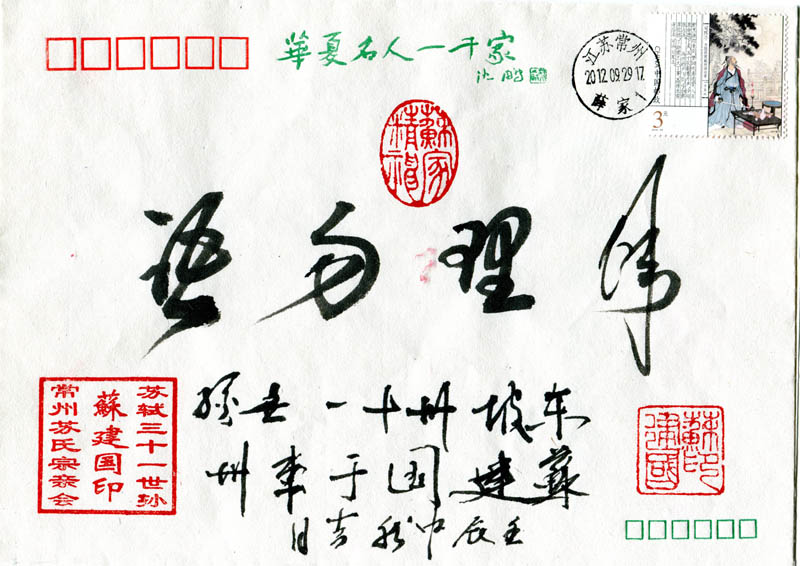 華夏名人一千家
沈鹏
江苏常州
2012.09.29.17
薛家1
3元
蘇家
伟理
东坡卅十一世孙
蘇建国于常州
壬辰中秋吉日
苏轼三十一世孙
蘇建国印
常州苏氏宗亲会
蘇印建國